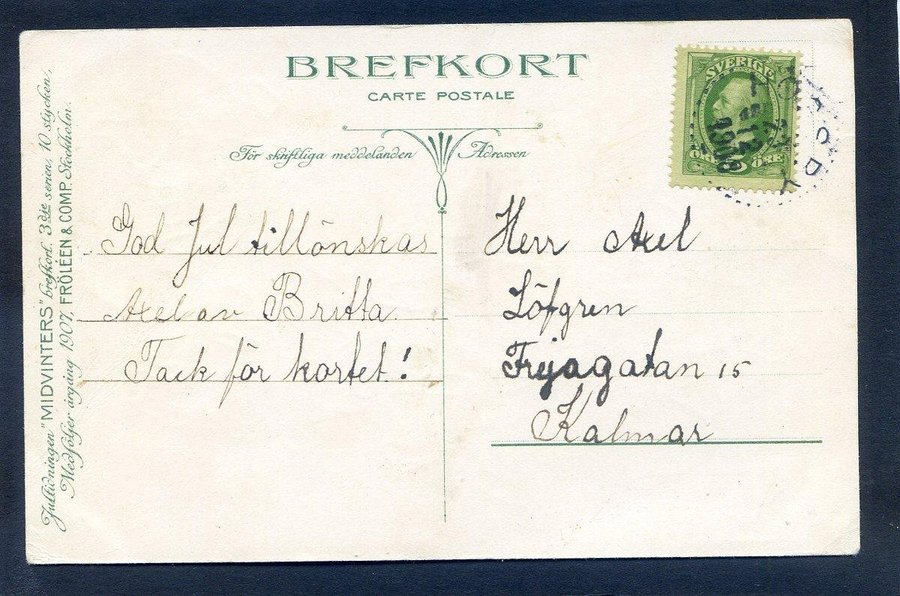 BREFKORT
CARTE POSTALE
För skriftliga meddelanden
Adressen
God Jul tillönskas
Axel av Britta
Tack för kortet!
Herr Axel
Löfgren
Frejagatan 15
Kalmar
Jultidningen "MIDVINTERS" brefkort. 3dje serien, 10 stycken,
Medföljer årgång 1907, FRÖLÉEN & COMP. Stockholm.
SVERIGE
ÖRE